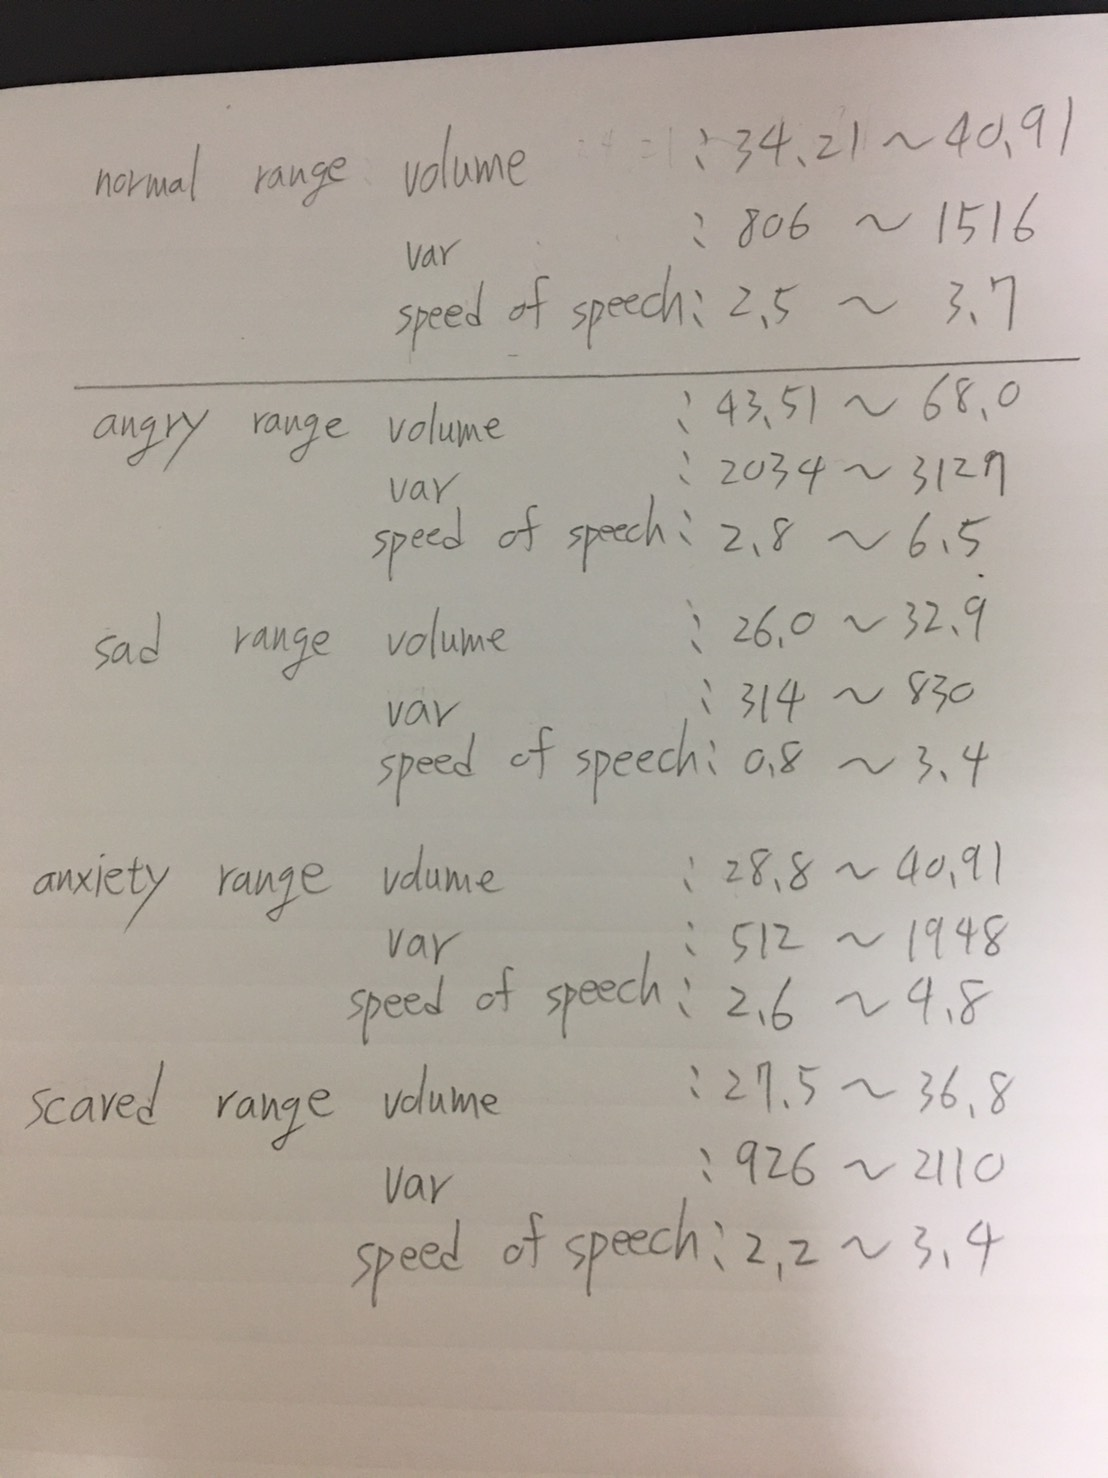 normal range volume : 34.21 ~ 40.91
var : 806 ~ 1516
speed of speech : 2.5 ~ 3.7
angry range volume : 43.51 ~ 68.0
var : 2034 ~ 3127
speed of speech : 2.8 ~ 6.5
sad range volume : 26.0 ~ 32.9
var : 314 ~ 830
speed of speech : 0.8 ~ 3.4
anxiety range volume : 28.8 ~ 40.91
var : 512 ~ 1948
speed of speech : 2.6 ~ 4.8
scared range volume : 27.5 ~ 36.8
var : 926 ~ 2110
speed of speech : 2.2 ~ 3.4